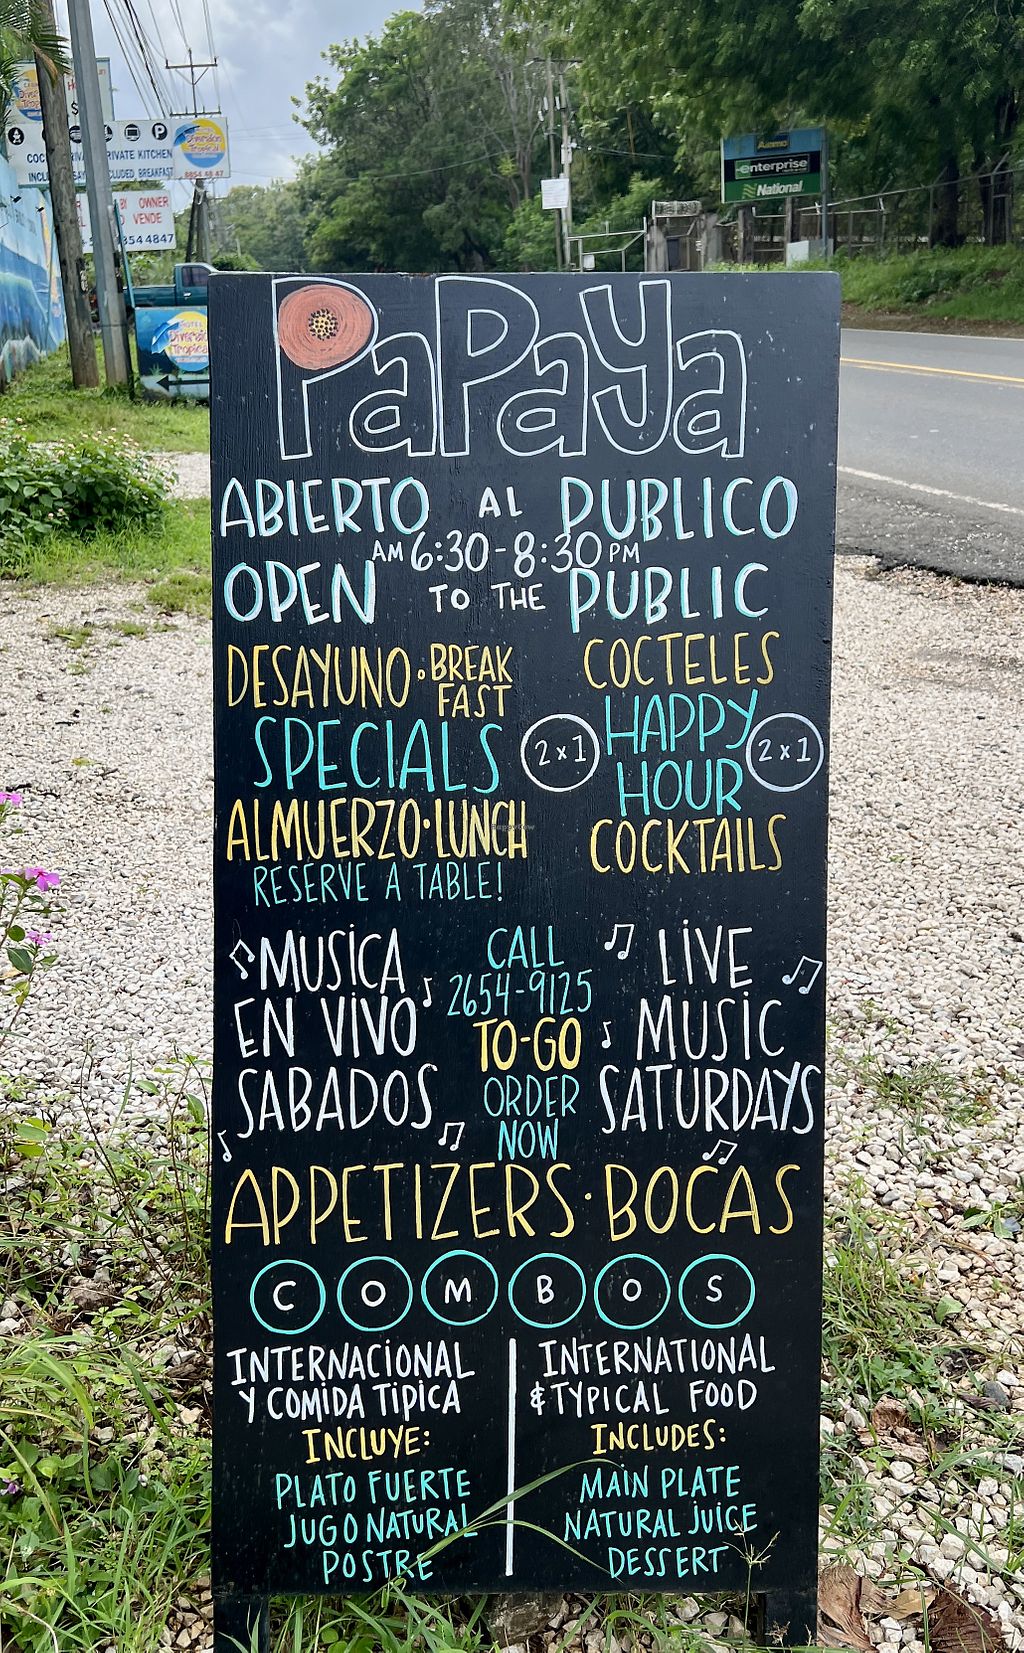 PaPaya
ABIERTO AL PUBLICO
AM 6:30-8:30 PM
OPEN TO THE PUBLIC
DESAYUNO · BREAK
FAST
SPECIALS
ALMUERZO · LUNCH
RESERVE A TABLE!
COCTELES
2x1 HAPPY 2x1
HOUR
COCKTAILS
MUSiCA
EN ViVO
SABADOS
CALL
2654-9125
TO-GO
ORDER
NOW
LiVE
MUSiC
SATURDAYS
APPETIZERS · BOCAS
COMBOS
INTERNACiONAL
Y COMiDA TiPiCA
INCLUYE:
PLATO FUERTE
JUGO NATURAL
POSTRE
INTERNATIONAL
& TYPICAL FOOD
INCLUDES:
MAIN PLATE
NATURAL JUiCE
DESSERT
Alamo
enterprise
National
PRIVATE KITCHEN
INCLUDED BREAKFAST
8854 48 47
BY OWNER
VENDE
HOTEL
Diversion
Tropical